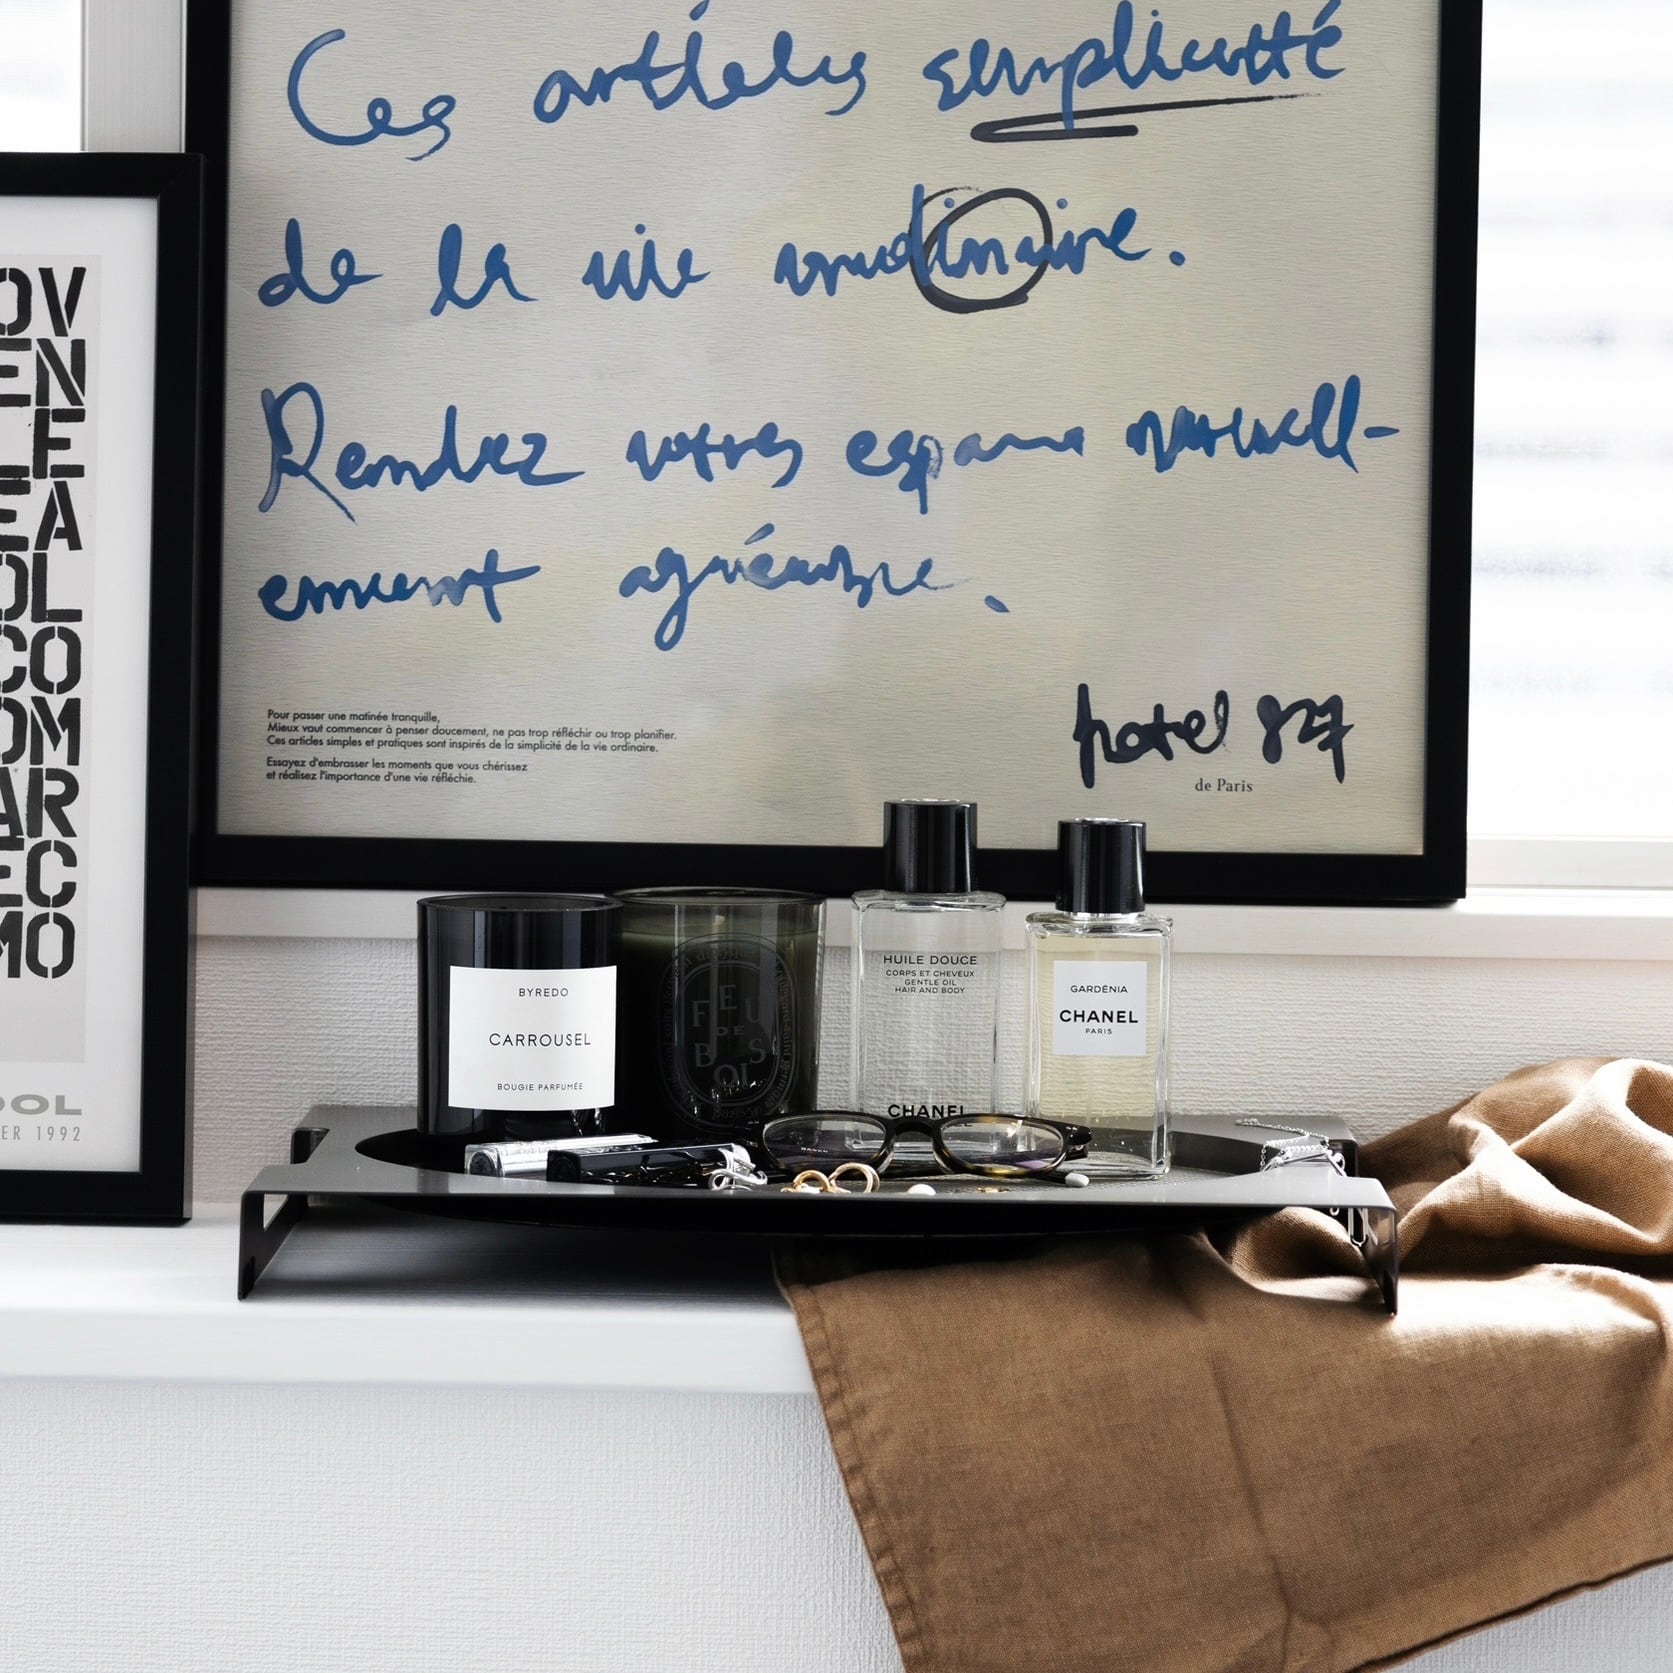 OV
EN
LE
EA
OL
CO
OM
AR
EC
MO
OOL
ER 1992
Ces articles simplicité
de la vie ordinaire.
Rendez votres espace
ement agréable.
Pour passer une matinée tranquille,
Mieux vaut commencer à penser doucement, ne pas trop réfléchir ou trop planifier.
Ces articles simples et pratiques sont inspirés de la simplicité de la vie ordinaire.
Essayez d'embrasser les moments que vous chérissez
et réalisez l'importance d'une vie réfléchie.
hotel 827
de Paris
BYREDO
CARROUSEL
BOUGIE PARFUMÉE
FEU
DE
BOIS
HUILE DOUCE
CORPS ET CHEVEUX
GENTLE OIL
HAIR AND BODY
CHANEL
GARDÉNIA
CHANEL
PARIS